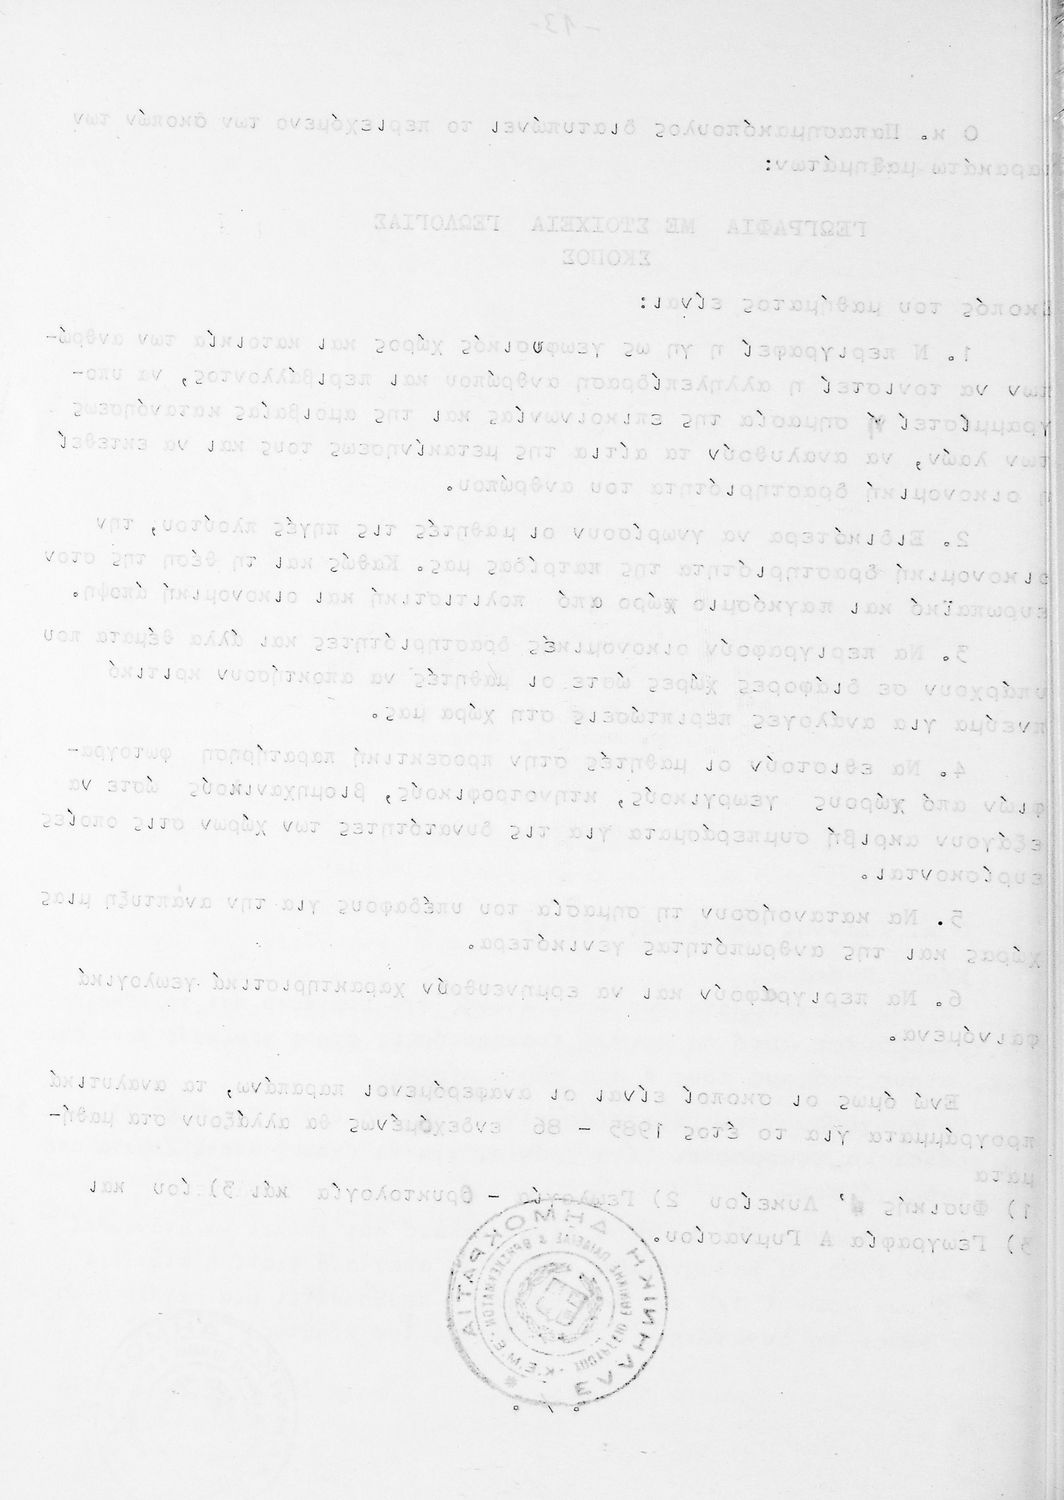 -13-
Ο κ. Παπασημακόπουλος διατυπώνει το περιεχόμενο των σκοπών των
παρακάτω μαθημάτων:
ΓΕΩΓΡΑΦΙΑ ΜΕ ΣΤΟΙΧΕΙΑ ΓΕΩΛΟΓΙΑΣ
ΣΚΟΠΟΣ
Σκοπός του μαθήματος είναι:
1. Ν περιγραφεί η γη ως γεωφυσικός χώρος και κατοικία των ανθρώ-
πων να τονιστεί η αλληλεπίδραση ανθρώπου και περιβάλλοντος, να υπο-
γραμμίστεί ή σημασία της επικοινωνίας και της αμοιβαίας κατανόησεως
των λαών, να αναλυθούν τα αίτια της μετακίνησεως τους και να εκτεθεί
η οικονομική δραστηριότητα του ανθρώπου.
2. Ειδικότερα να γνωρίσουν οι μαθητές τις πηγές πλούτου, την
οικονομική δραστηριότητα της πατρίδας μας. Καθώς και τη θέση της στον
ευρωπαϊκό και παγκόσμιο χώρο από πολιτιστική και οικονομική άποψη.
3. Να περιγραφούν οικονομικές δραστηριότητες και άλλα θέματα που
υπάρχουν σε διάφορες χώρες ώστε οι μαθητές να αποκτήσουν κριτικό
πνεύμα για ανάλογες περιπτώσεις στη χώρα μας.
4. Να εθιστούν οι μαθητές στην προσεκτική παρατήρηση φωτογρα-
φιών από χώρους γεωργικούς, κτηνοτροφικούς, βιομηχανικούς ώστε να
εξάγουν ακριβή συμπεράσματα για τις δυνατότητες των χώρων στις οποίες
ευρίσκονται.
5. Να κατανοήσουν τη σημασία του υπέδαφους για την ανάπτυξη μιας
χώρας και της ανθρωπότητας γενικότερα.
6. Να περιγραφούν και να ερμηνευθούν χαρακτηριστικά γεωλογικά
φαινόμενα.
Ενώ όμως οι σκοποί είναι οι αναφερόμενοι παραπάνω, τα αναλυτικά
προγράμματα για το έτος 1985 - 86 ενδεχόμένως θα αλλάξουν στα μαθή-
ματα
1) Φυσικής Λυκείου 2) Γεωλογία - Ορυκτολογία και
3) Γεωγραφία Α Γυμνασίου.
ΕΛΛΗΝΙΚΗ ΔΗΜΟΚΡΑΤΙΑ
ΥΠΟΥΡΓΕΙΟ ΕΘΝΙΚΗΣ ΠΑΙΔΕΙΑΣ & ΘΡΗΣΚΕΥΜΑΤΩΝ
Κ.Ε.Μ.Ε.
./.